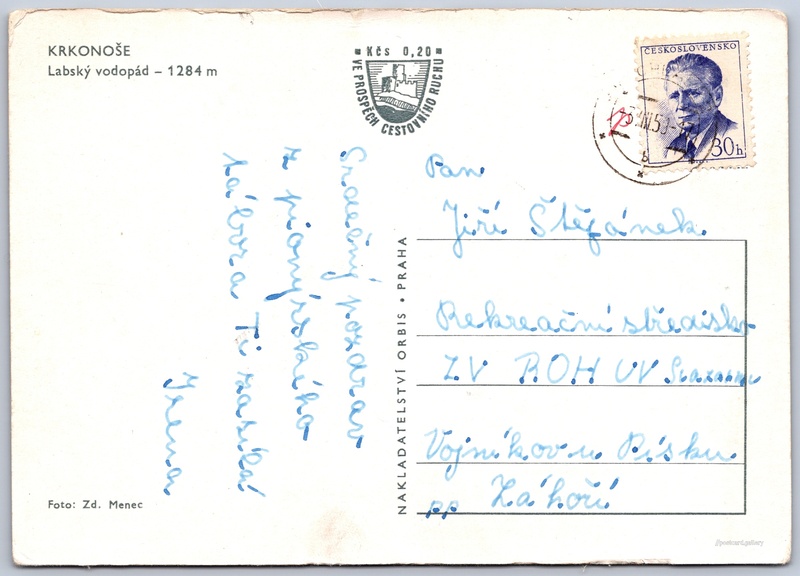 KRKONOŠE
Labský vodopád – 1284 m
Kčs 0,20
VE PROSPĚCH CESTOVNÍHO RUCHU
ČESKOSLOVENSKO
30h
Srdečný pozdrav
z pionýrského
tábora Ti zasílá
Irena
Pan
Jiří Štěpánek
Rekreační středisko
ZV ROH UV
Vojníkov u Písku
pp Záhoří
NAKLADATELSTVÍ ORBIS • PRAHA
Foto: Zd. Menec
@postcard.gallery